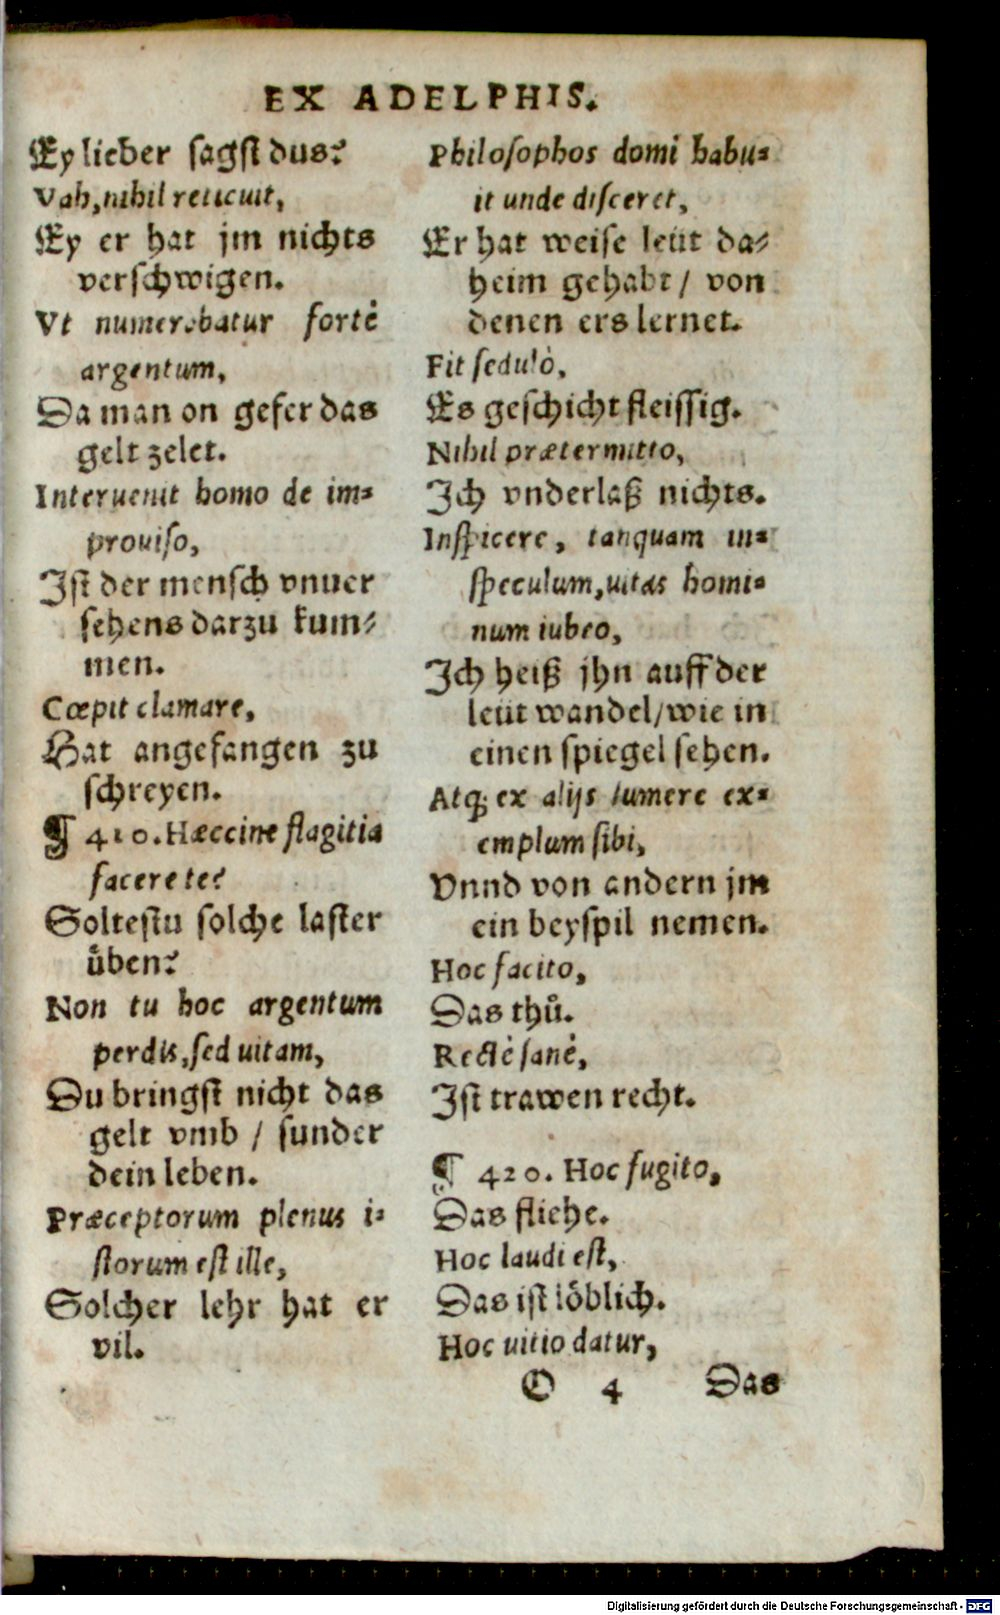 EX ADELPHIS.
Ey lieber sagst dus?
Vah, nihil reticuit,
Ey er hat jm nichts
verschwigen.
Vt numerabatur fortè
argentum,
Da man on gefer das
gelt zelet.
Interuenit homo de im-
prouiso,
Ist der mensch vnuer
sehens darzu kum-
men.
Cœpit clamare,
Hat angefangen zu
schreyen.
¶ 410. Hæccine flagitia
facere te?
Soltestu solche laster
uͤben?
Non tu hoc argentum
perdis, sed uitam,
Du bringst nicht das
gelt vmb / sunder
dein leben.
Præceptorum plenus i-
storum est ille,
Solcher lehr hat er
vil.
Philosophos domi habu-
it unde disceret,
Er hat weise leüt da-
heim gehabt / von
denen ers lernet.
Fit sedulò,
Es geschicht fleissig.
Nihil prætermitto,
Ich vnderlaß nichts.
Inspicere, tanquam in-
speculum, uitas homi-
num iubeo,
Ich heiß jhn auff der
leüt wandel / wie in
einen spiegel sehen.
Atq; ex alijs sumere ex-
emplum sibi,
Vnnd von andern jm
ein beyspil nemen.
Hoc facito,
Das thuͦ.
Rectè sanè,
Ist trawen recht.
¶ 420. Hoc fugito,
Das fliehe.
Hoc laudi est,
Das ist loͤblich.
Hoc uitio datur,
O 4 Das
Digitalisierung gefördert durch die Deutsche Forschungsgemeinschaft - DFG